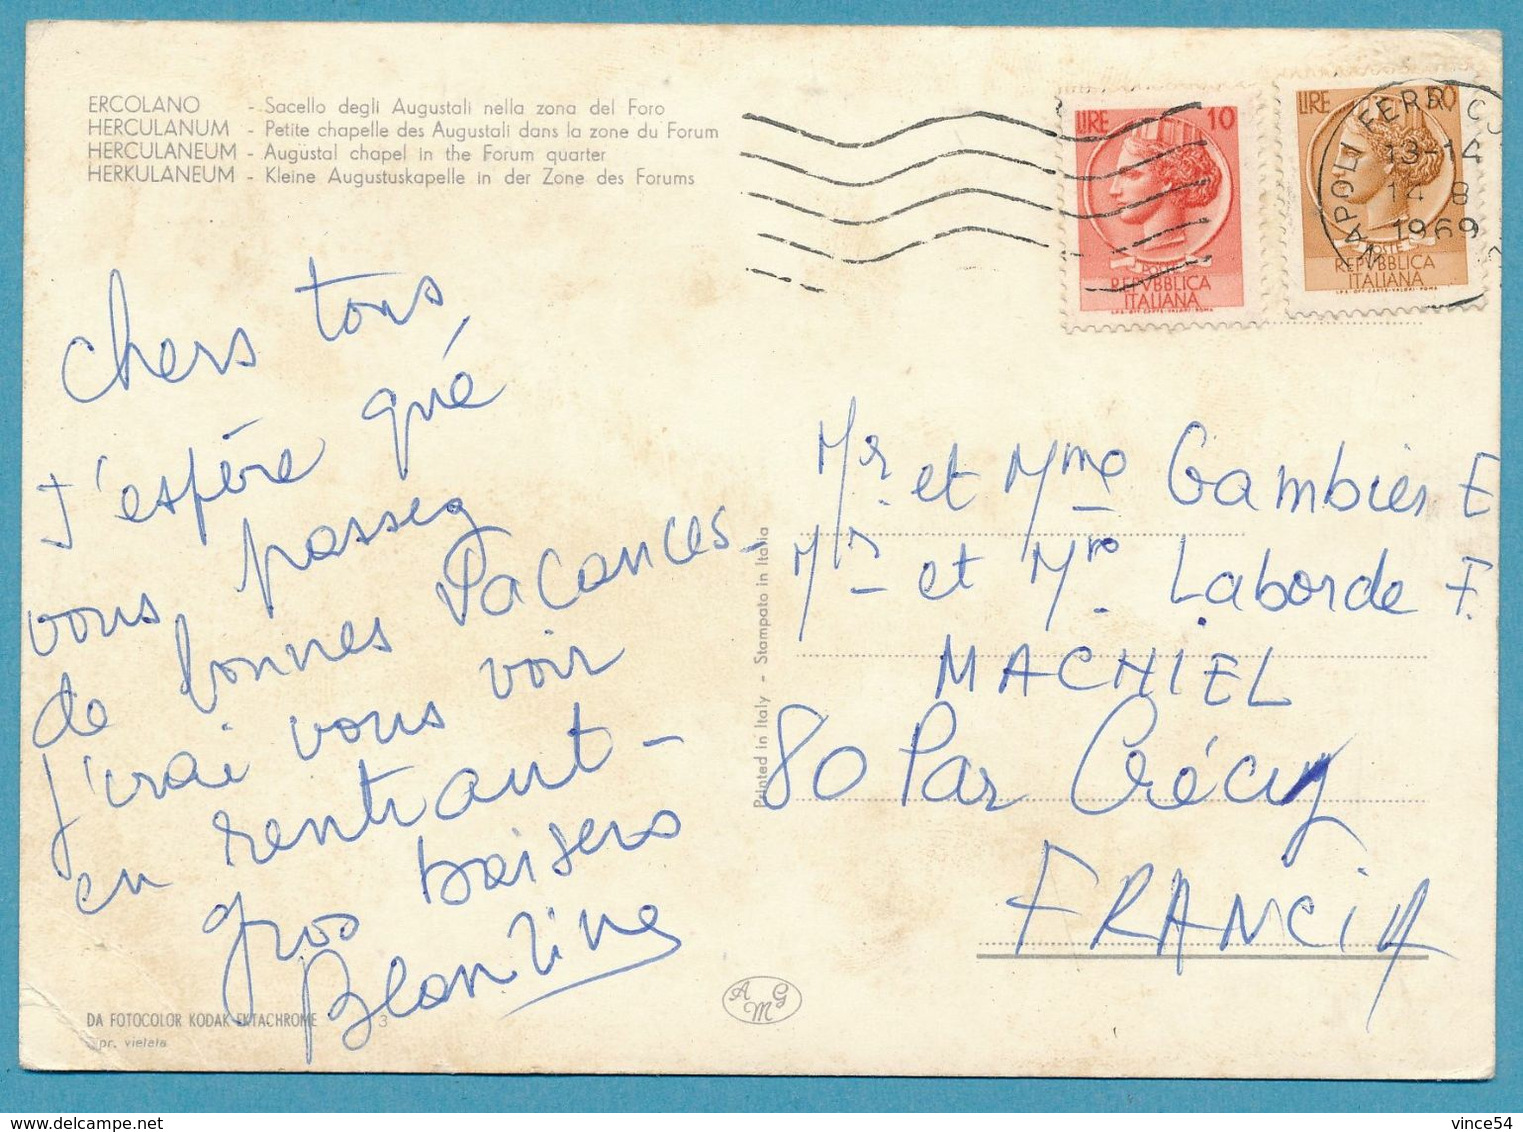 ERCOLANO - Sacello degli Augustali nella zona del Foro
HERCULANUM - Petite chapelle des Augustali dans la zone du Forum
HERCULANEUM - Augustal chapel in the Forum quarter
HERKULANEUM - Kleine Augustuskapelle in der Zone des Forums
LIRE 10
POSTE
REPVBBLICA
ITALIANA
LIRE 30
POSTE
REPVBBLICA
ITALIANA
NAPOLI FERR. CO
13-14
14 8
1969
chers tous
J'espère que
vous passez
de bonnes vacances -
j'irai vous voir
en rentrant -
gros baisers
Blandine
Mr et Mme Gambier E
Mr et Mr Laborde F.
MACHIEL
80 Par Crécy
FRANCIA
Printed in Italy - Stampato in Italia
AMG
DA FOTOCOLOR KODAK EKTACHROME 3
pr. vietata
vince54